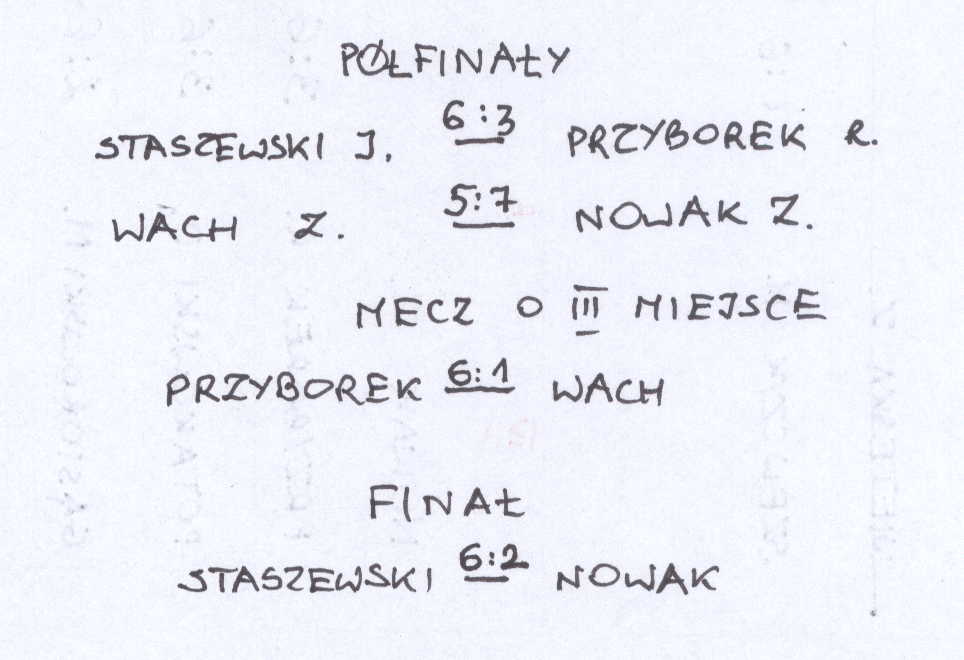 PÓŁFINAŁY
STASZEWSKI J. 6:3 PRZYBOREK R.
WACH Z. 5:7 NOWAK Z.
MECZ O III MIEJSCE
PRZYBOREK 6:1 WACH
FINAŁ
STASZEWSKI 6:2 NOWAK